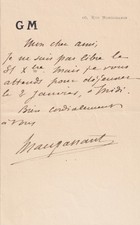 GM
Mon cher ami,
Je ne suis pas libre le
31 Xbre. Mais je vous
attends pour déjeuner
le 2 Janvier, à midi.
Bien cordialement
à vous
Maupassant